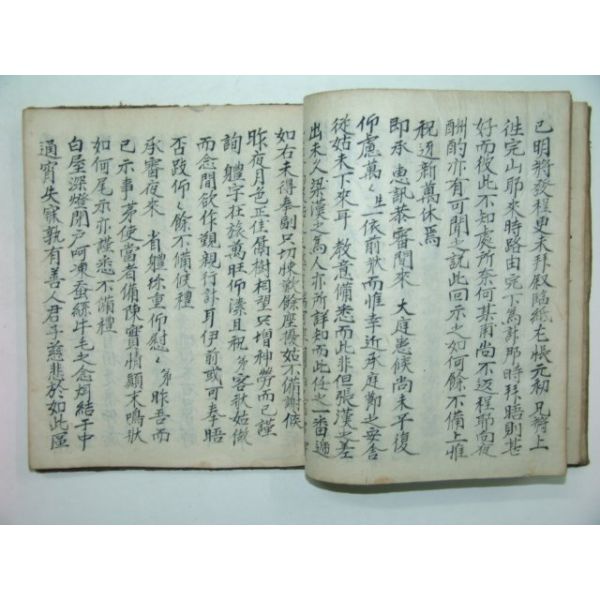 已明將發程更未拜殿臨紙尤悵元初 兄將上
往完山耶來時路由完下爲計那時拜晤則甚
好而彼此不知處所奈何某甫尙不返程耶向夜
酬酌亦有可聞之說此回示之如何餘不備上惟
祝近新萬休焉
卽承 惠訊恭審間來 大庭患候尙未平復
仰慮萬〻生一依前狀而惟幸近承庭鄕之安
從姑未下來耳 敎意備悉而此非但張漢之差
出未人梁漢之爲人亦所詳知而此任之一番
如右未得奉副只切悚歎餘座優姑不備謝依
昨夜月色正佳隔樹相望只增神勞而已謹
詢 體字在旅萬旺仰溸且祝弟客狀姑做
而念間欲作覲親行計耳伊前或可奉晤
否跂仰〻餘不備候禮
承審夜來 省體珍重仰慰〻弟昨吾而
已示事茅使當者備陳實情顚末鳴狀
如何尾示亦謹悉不備禮
白屋深燈閉戶呵凍蚕絲牛毛之念捆結于中
通宵失寐孰有善人君子慈悲於如此區